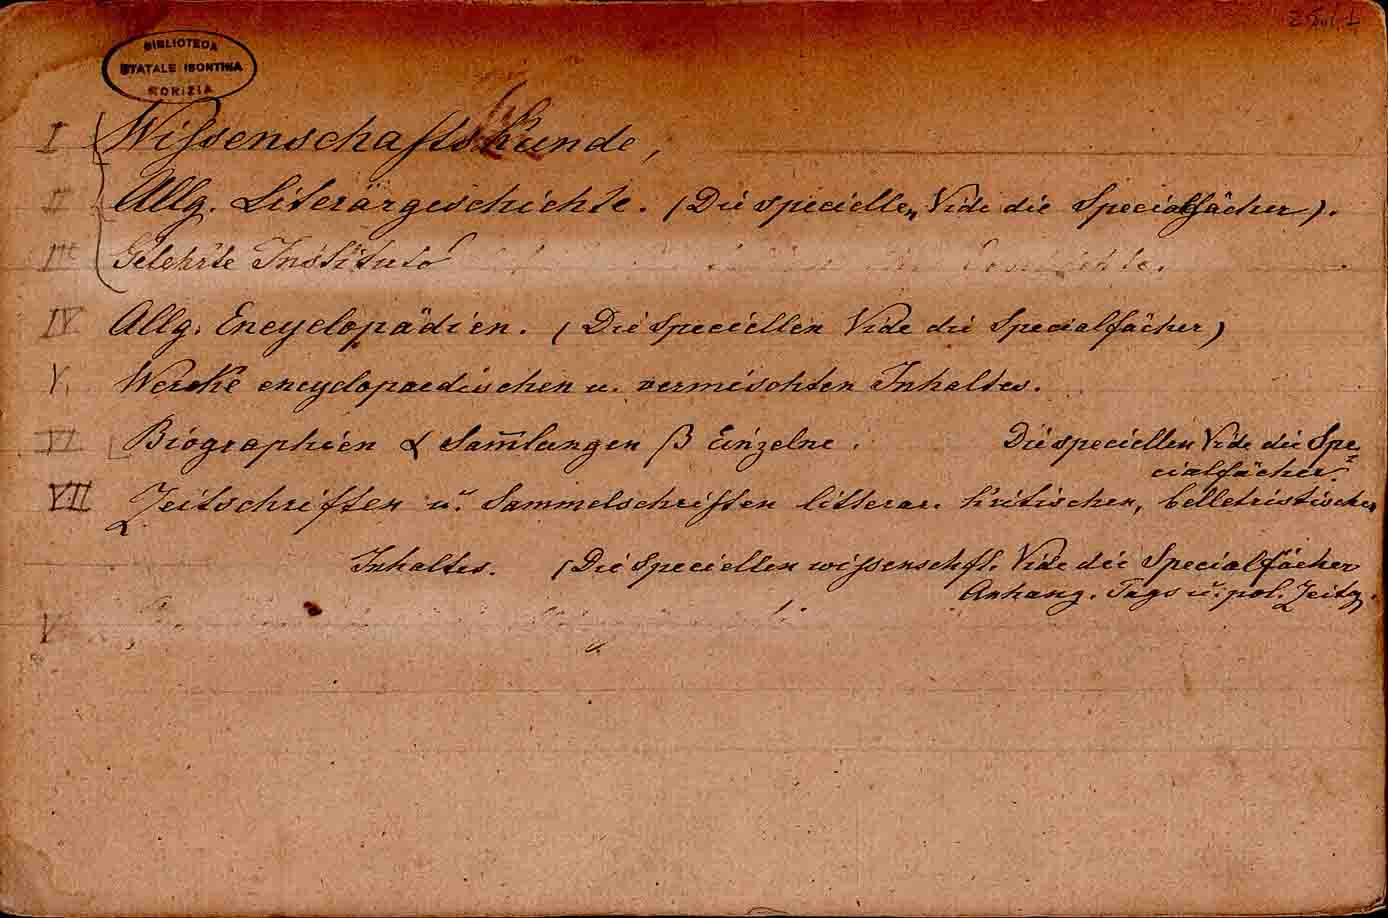 BIBLIOTECA
STATALE ISONTINA
GORIZIA
I Wissenschaftskunde,
II Allg. Literärgeschichte. (Die speciellen Vide die Specialfächer).
III Gelehrte Institute
IV Allg. Encyclopädien. (Die speciellen Vide die Specialfächer)
V. Werke encyclopaedischen u. vermischten Inhaltes.
VI Biographien α Sam̅lungen β Einzelne. Die speciellen Vide die Spe=
cialfächer.
VII Zeitschriften u. Sammelschriften litterar. kritischen, belletristischen
Inhaltes. (Die speciellen wissenschftl. Vide die Specialfächer
Anhang. Tags u. pol. Zeitg.